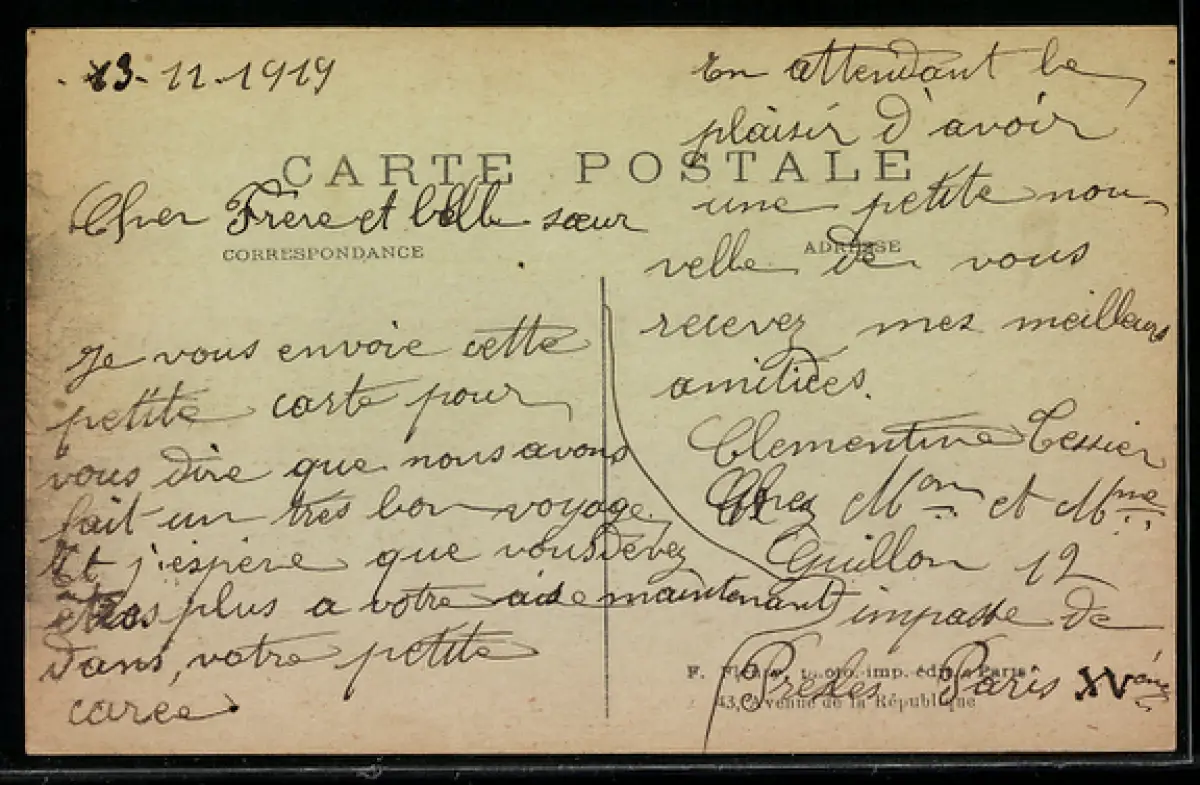 13-11-1919
CARTE POSTALE
Cher Frère et belle sœur
CORRESPONDANCE
Je vous envoie cette
petite carte pour
vous dire que nous avons
fait un tres bon voyage.
Et j'espère que vous devez
plus a votre aise maintenant
dans, votre petite
carée
ADRESSE
En attendant le
plaisir d'avoir
une petite nou-
velle de vous
recevez mes meilleurs
amitiées.
Clementine Tessier
Chez Mon et Mme
Guillon 12
impasse de
Presles Paris XVéme
F. photo.-imp.-édit. Paris
43, Avenue de la République